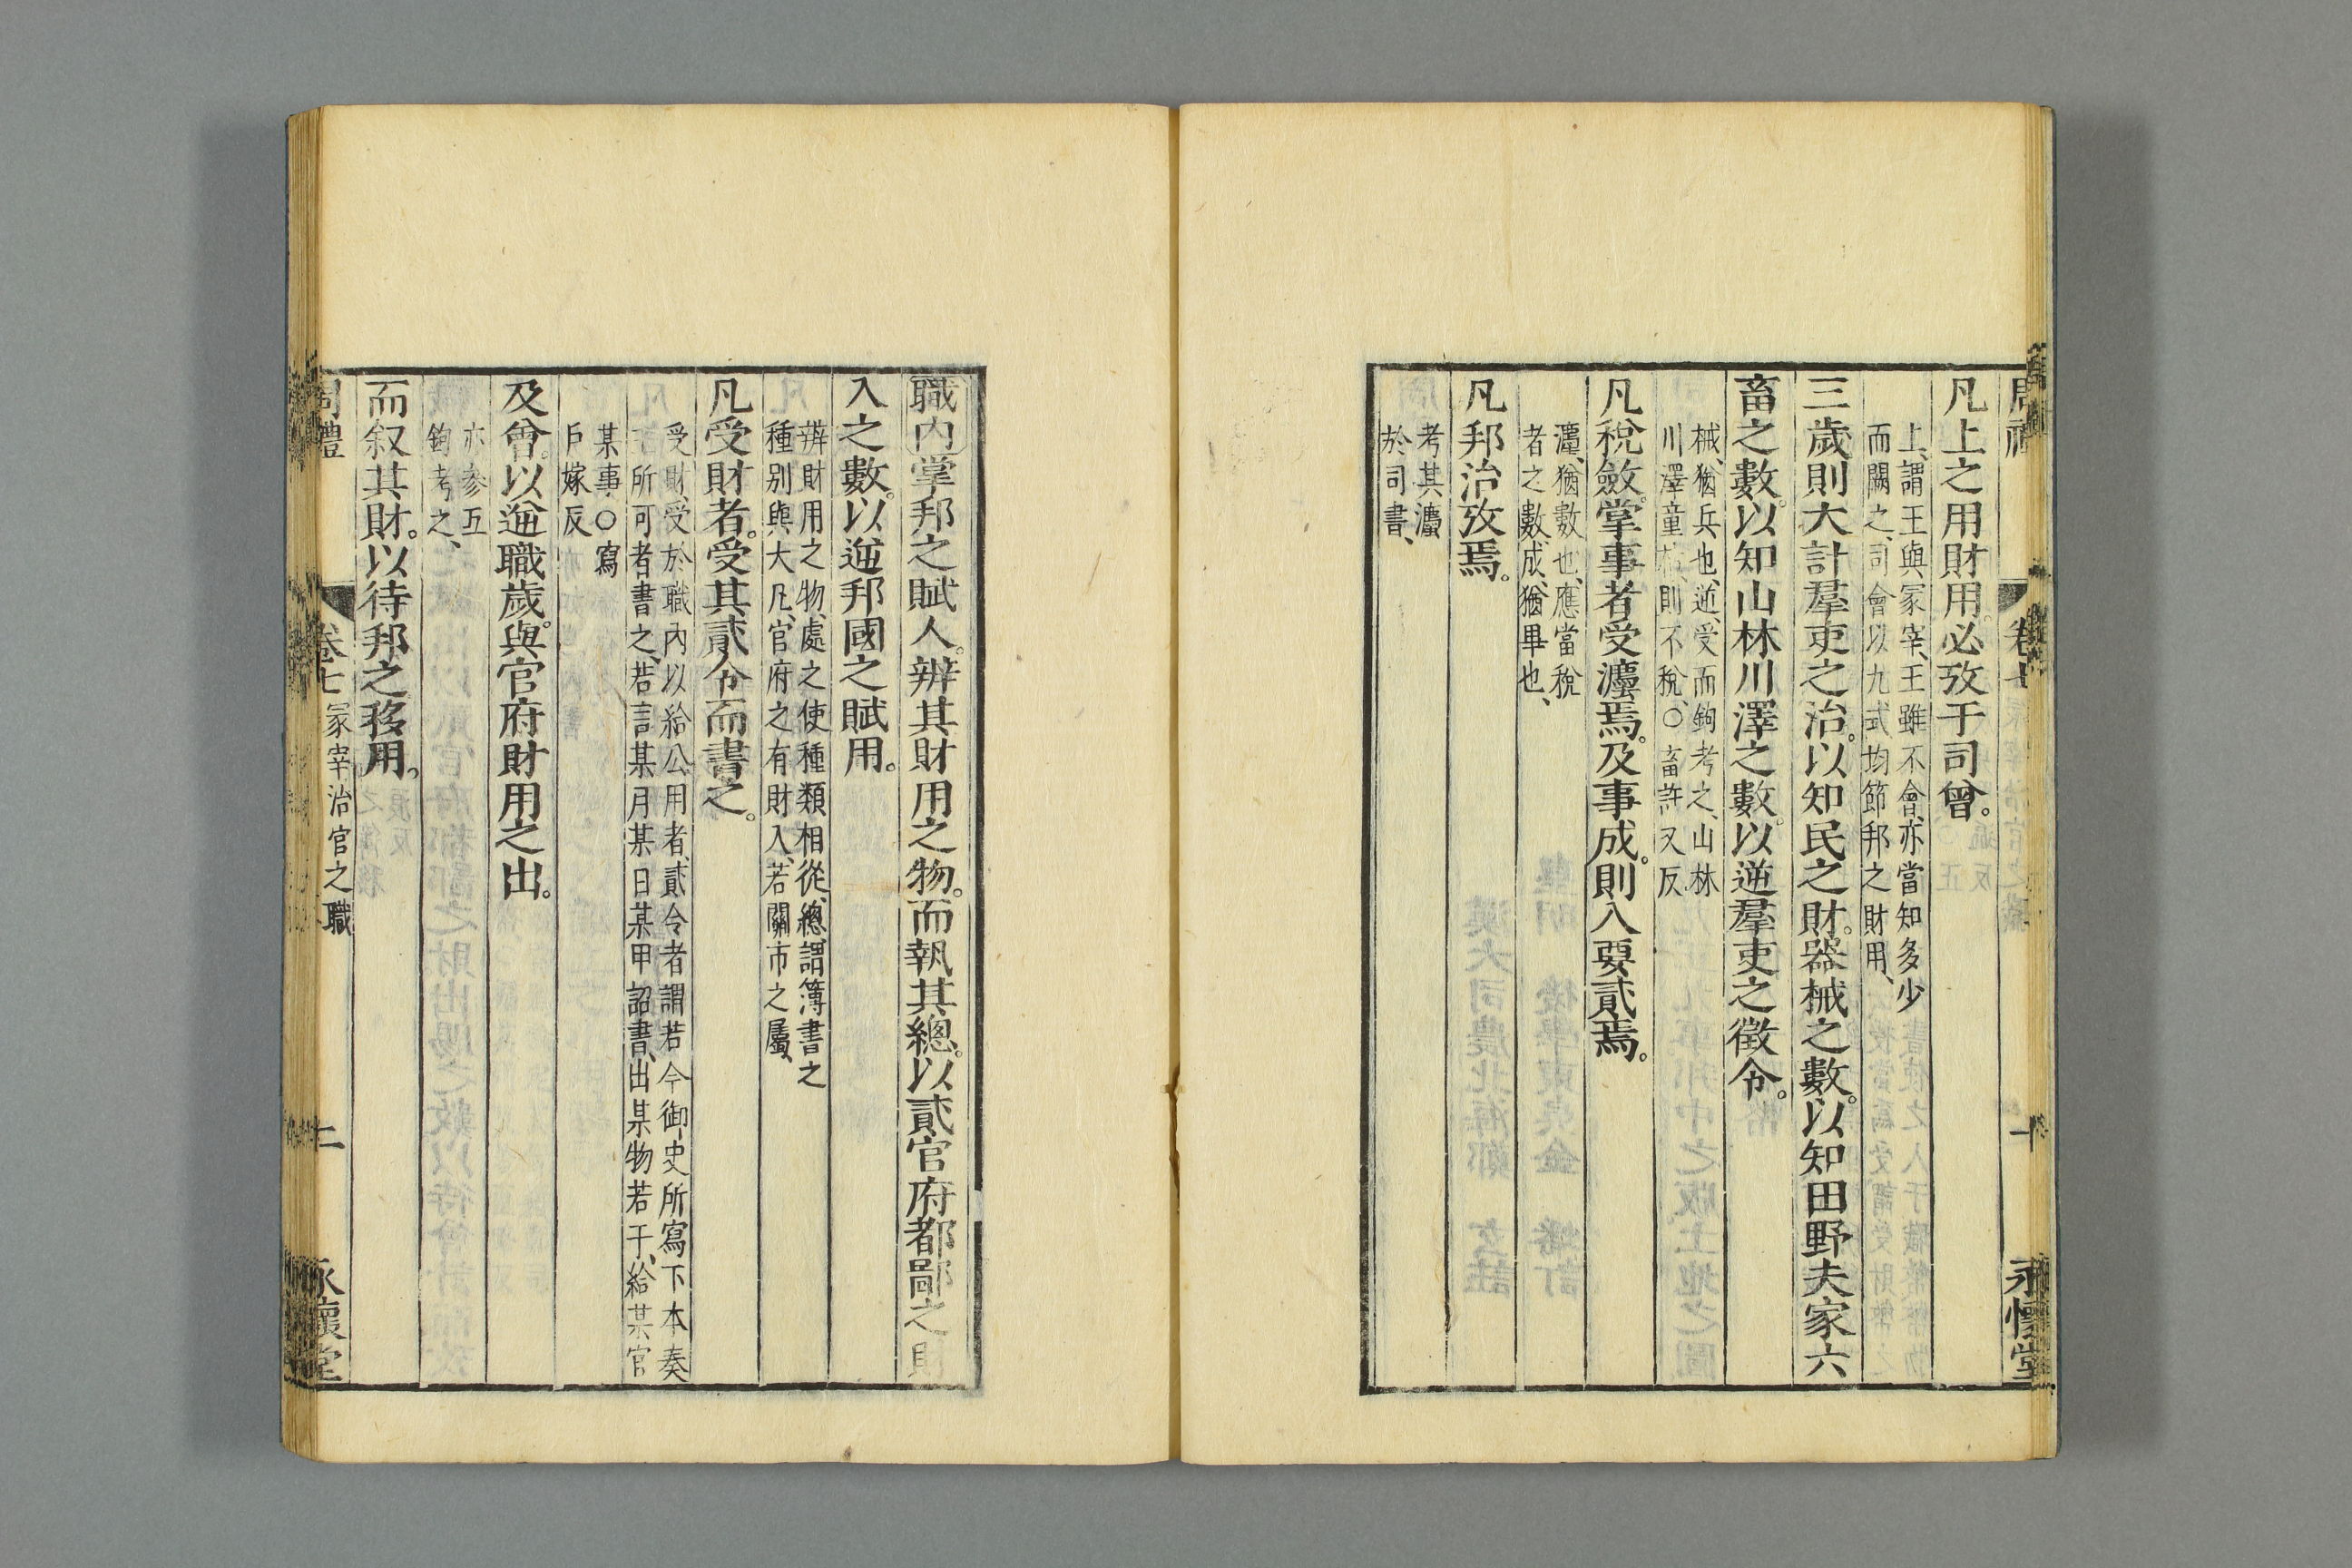 周禮 卷七 一 永懷堂
凡上之用財用。必攷于司會。
上、謂王與冢宰、王雖不會、亦當知多少
而闕之、司會以九式均節邦之財用、
三歲則大計羣吏之治。以知民之財。器械之數。以知田野夫家六
畜之數。以知山林川澤之數。以逆羣吏之徵令。
械、猶兵也、逆、受而鉤考之、山林
川澤童枯、則不稅、○畜許又反
凡稅斂。掌事者受灋焉。及事成。則入要貳焉。
灋、猶數也、應當稅
者之數、成、猶畢也、
凡邦治攷焉。
考其灋
於司書、
職內掌邦之賦入。辨其財用之物。而執其總。以貳官府都鄙之財
入之數。以逆邦國之賦用。
辨財用之物、處之使種類相從、總、謂簿書之
種別與大凡、官府之有財入、若關市之屬、
凡受財者。受其貳令而書之。
受財、受於職內以給公用者、貳令者謂若今御史所寫下本奏
王所可者書之、若言某月某日某甲詔書、出某物若干、給某官
某事、○寫
戶嫁反
及會。以逆職歲。與官府財用之出。
亦參互
鉤考之、
而叙其財。以待邦之移用。
周禮 卷七 冢宰治官之職 二 永懷堂